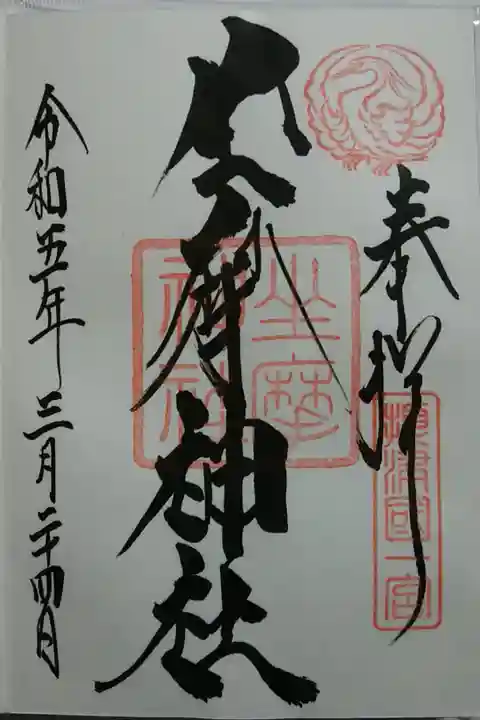 奉拝
摂津国一宮
坐摩神社
坐摩神社
令和五年三月二十四日